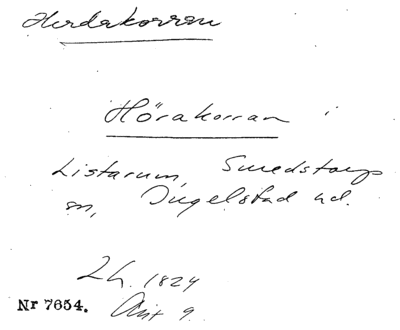 Herdakorran
Hörakorran
Listarum, Smedstorps
sn, Ingelstad hd.
Lh. 1824
Nr 7654. Akt 9